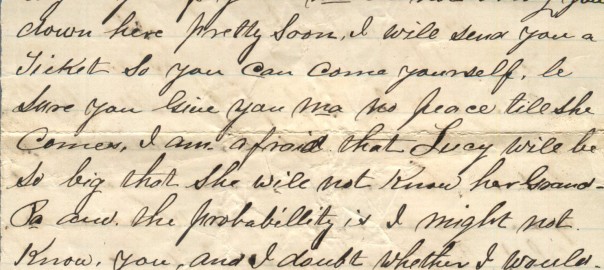 down here pretty soon, I will send you a
Ticket so you can come yourself, be
sure you Give you Ma no peace till she
Comes, I am afraid that Lucy will be
so big that she will not Know her Grand-
Pa and. the probabillity is I might not.
Know, you, and I doubt whether I would-